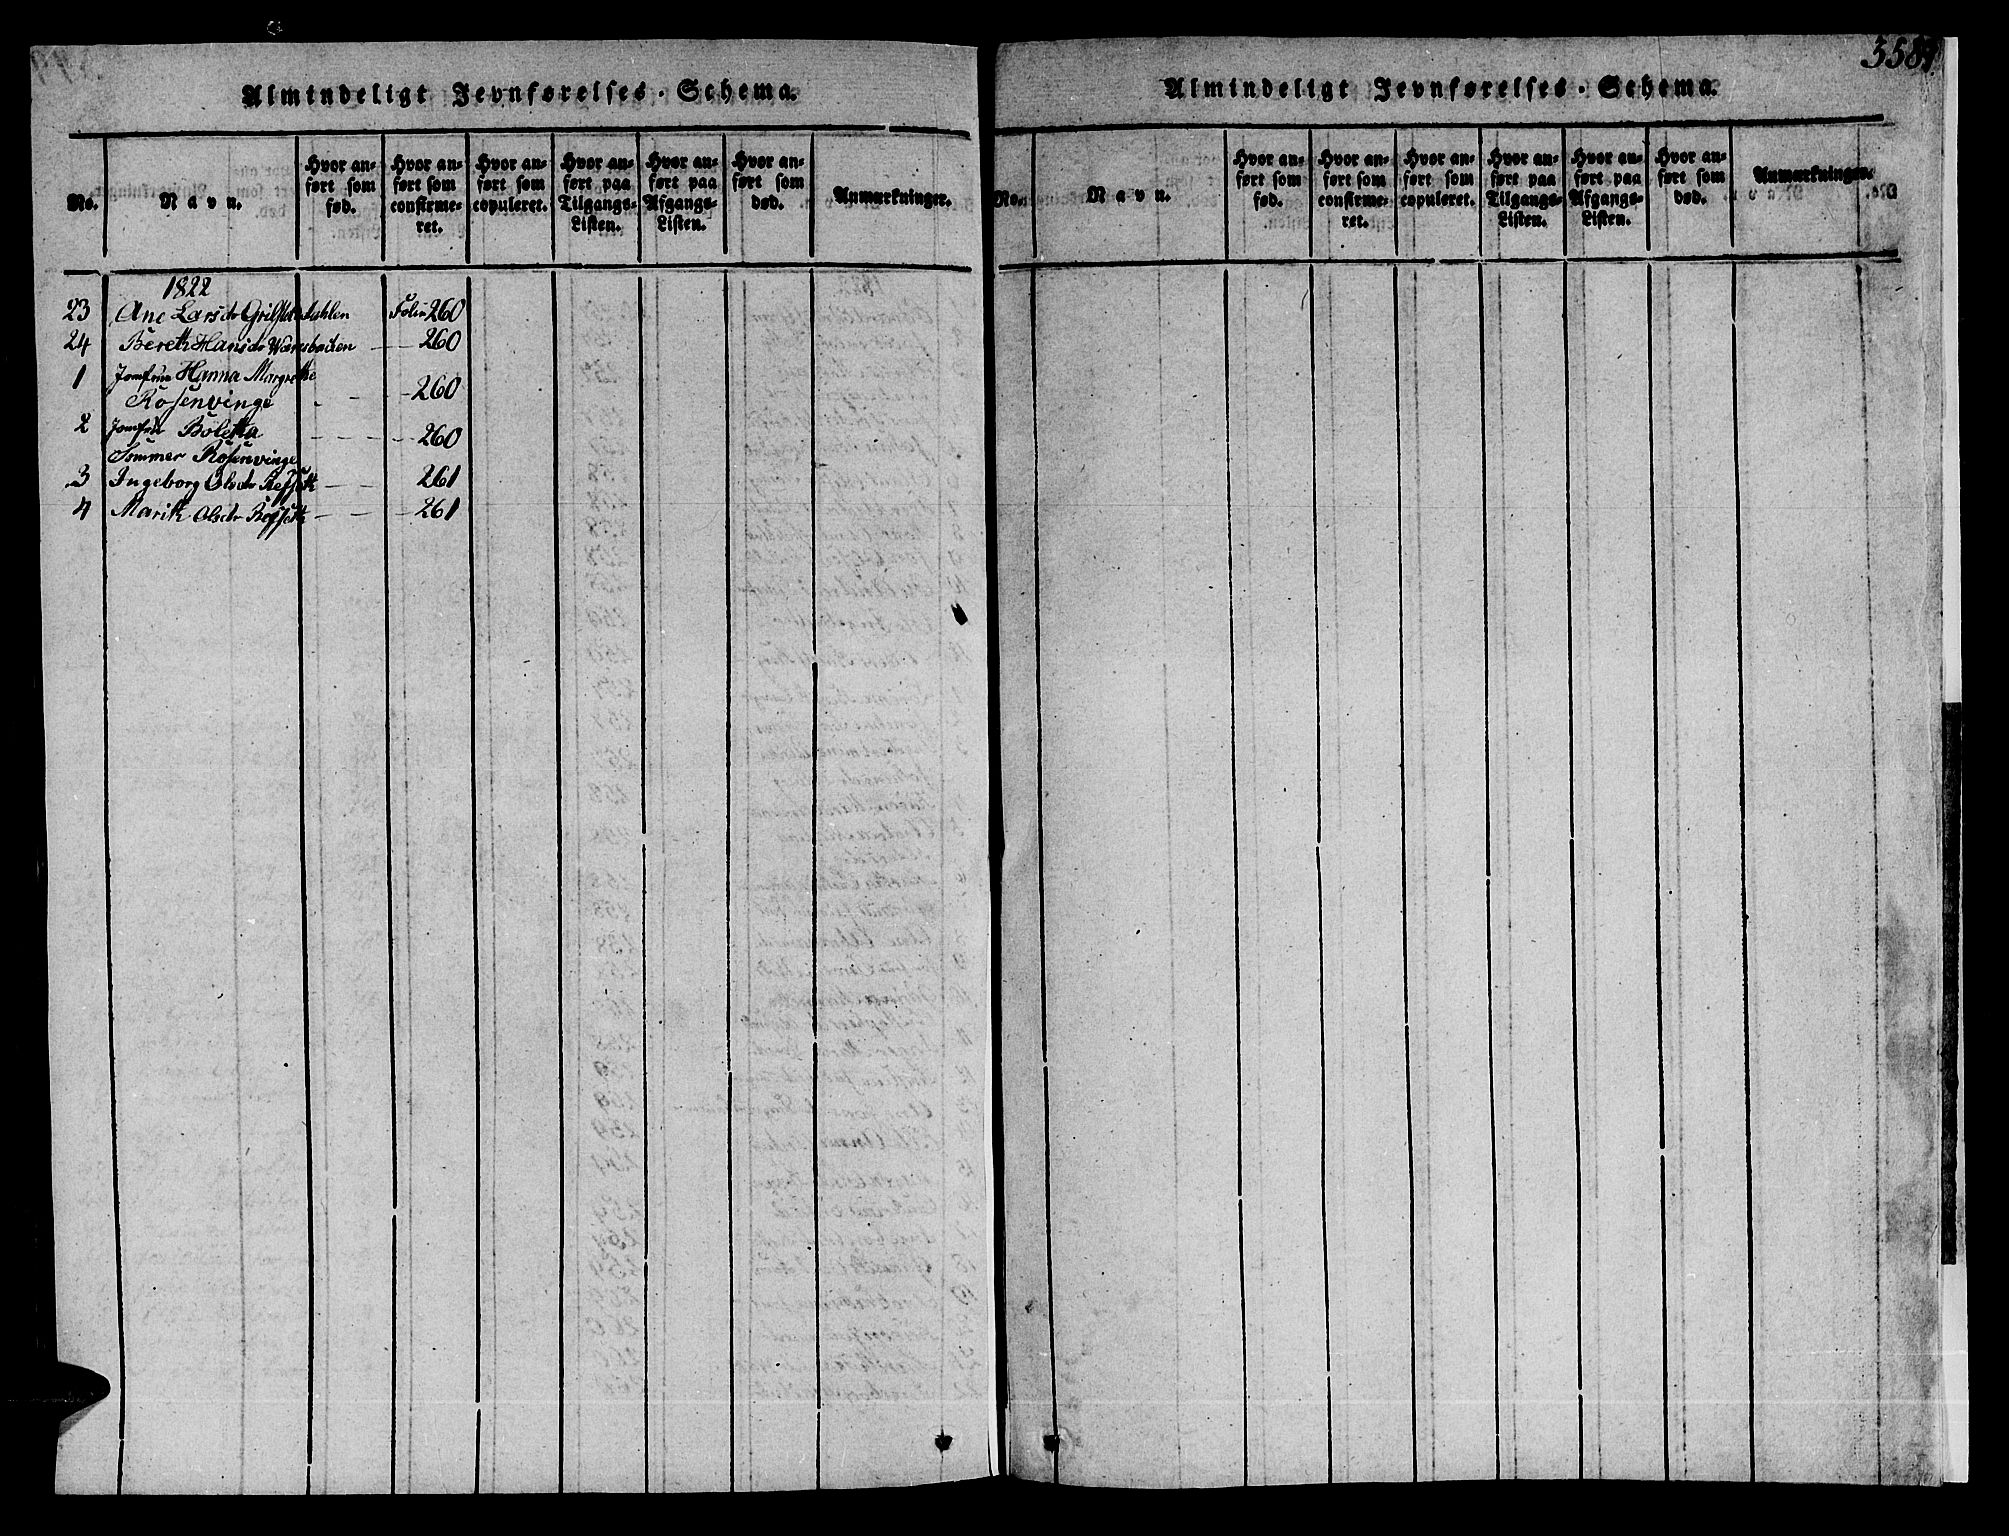 Almindeligt Jevnførelses-Schema.
No.
Navn.
Hvor an-
ført som
fød.
Hvor an-
ført som
confirme-
ret.
Hvor an-
ført som
copuleret.
Hvor an-
ført paa
Tilgangs-
Listen.
Hvor an-
ført paa
Afgangs-
Listen.
Hvor an-
ført som
død.
Anmærkninger.
1822
23 Ane Larsdr Folio 260
24 Bereth Hansdr 260
1 Jomfrue Hanna Margrethe
Rosenvinge 260
2 Jomfru Boletta 260
Sommer Rosenvinge
3 Ingeborg Olsdr 261
4 Marith Olsdr 261
358
Almindeligt Jevnførelses-Schema.
No.
Navn.
Hvor an-
ført som
fød.
Hvor an-
ført som
confirme-
ret.
Hvor an-
ført som
copuleret.
Hvor an-
ført paa
Tilgangs-
Listen.
Hvor an-
ført paa
Afgangs-
Listen.
Hvor an-
ført som
død.
Anmærkninger.